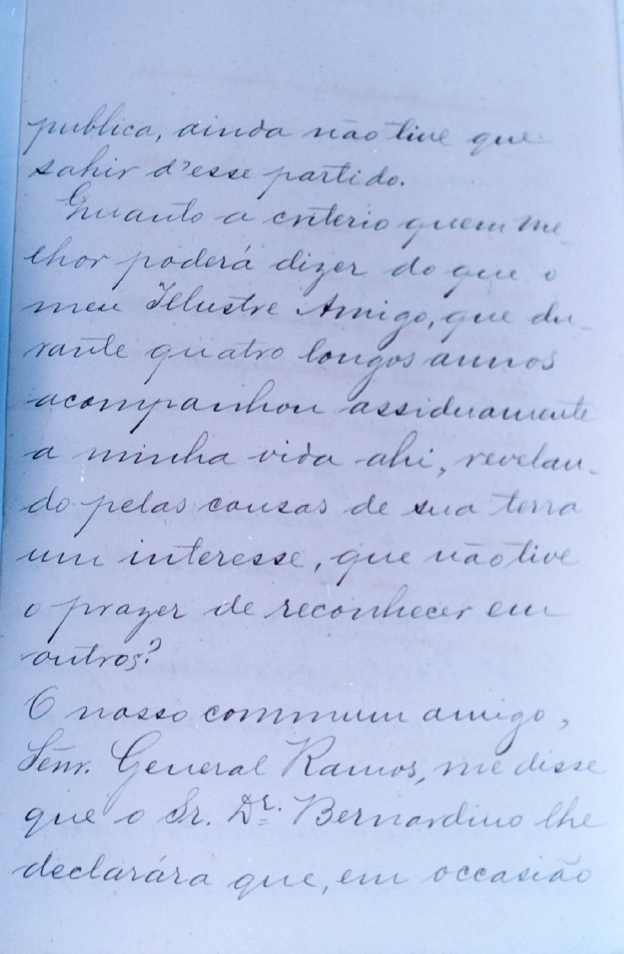 publica, ainda não tive que
sahir d'esse partido.
Quanto a criterio quem me-
lhor poderá dizer do que o
meu Illustre Amigo, que du-
rante quatro longos annos
acompanhou assiduamente
a minha vida ahi, revelan-
do pelas causas de sua terra
um interesse, que não tive
o prazer de reconhecer em
outros?
O nosso commum amigo,
Senr. General Ramos, me disse
que o Sr. Dr. Bernardino lhe
declarára que, em occasião